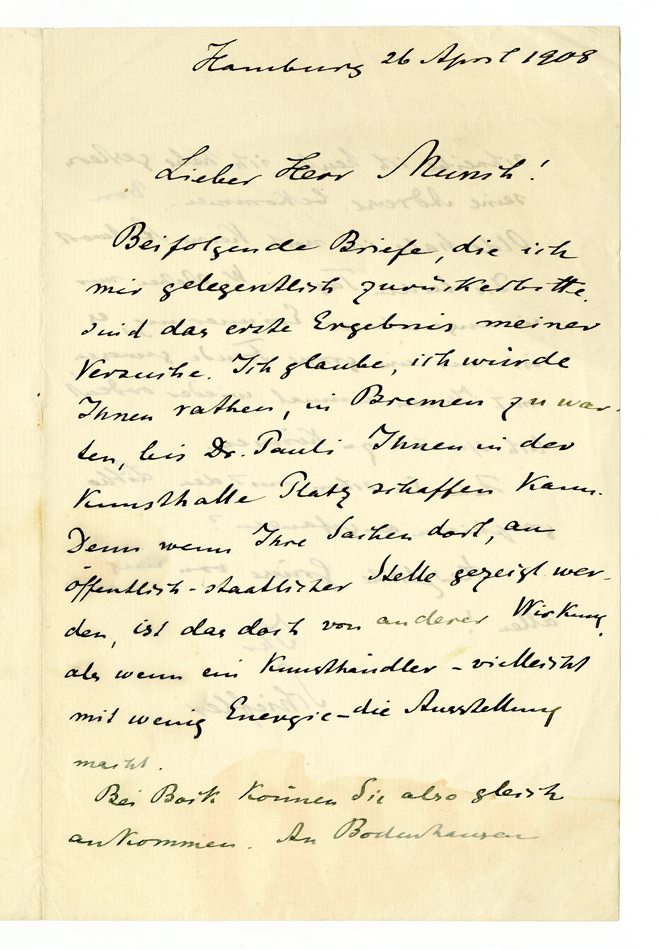 Hamburg 26 April 1908
Lieber Herr Munch!
Beifolgende Briefe, die ich
mir gelegentlich zurückerbitte,
sind das erste Ergebnis meiner
Versuche. Ich glaube, ich würde
Ihnen rathen, in Bremen zu war-
ten, bis Dr. Pauli Ihnen in der
Kunsthalle Platz schaffen kann.
Denn wenn Ihre Sachen dort, an
öffentlich-staatlicher Stelle gezeigt wer-
den, ist das doch von anderer Wirkung,
als wenn ein Kunsthändler – vielleicht
mit wenig Energie – die Ausstellung
macht.
Bei Bock können Sie also gleich
ankommen. An Bodenhausen